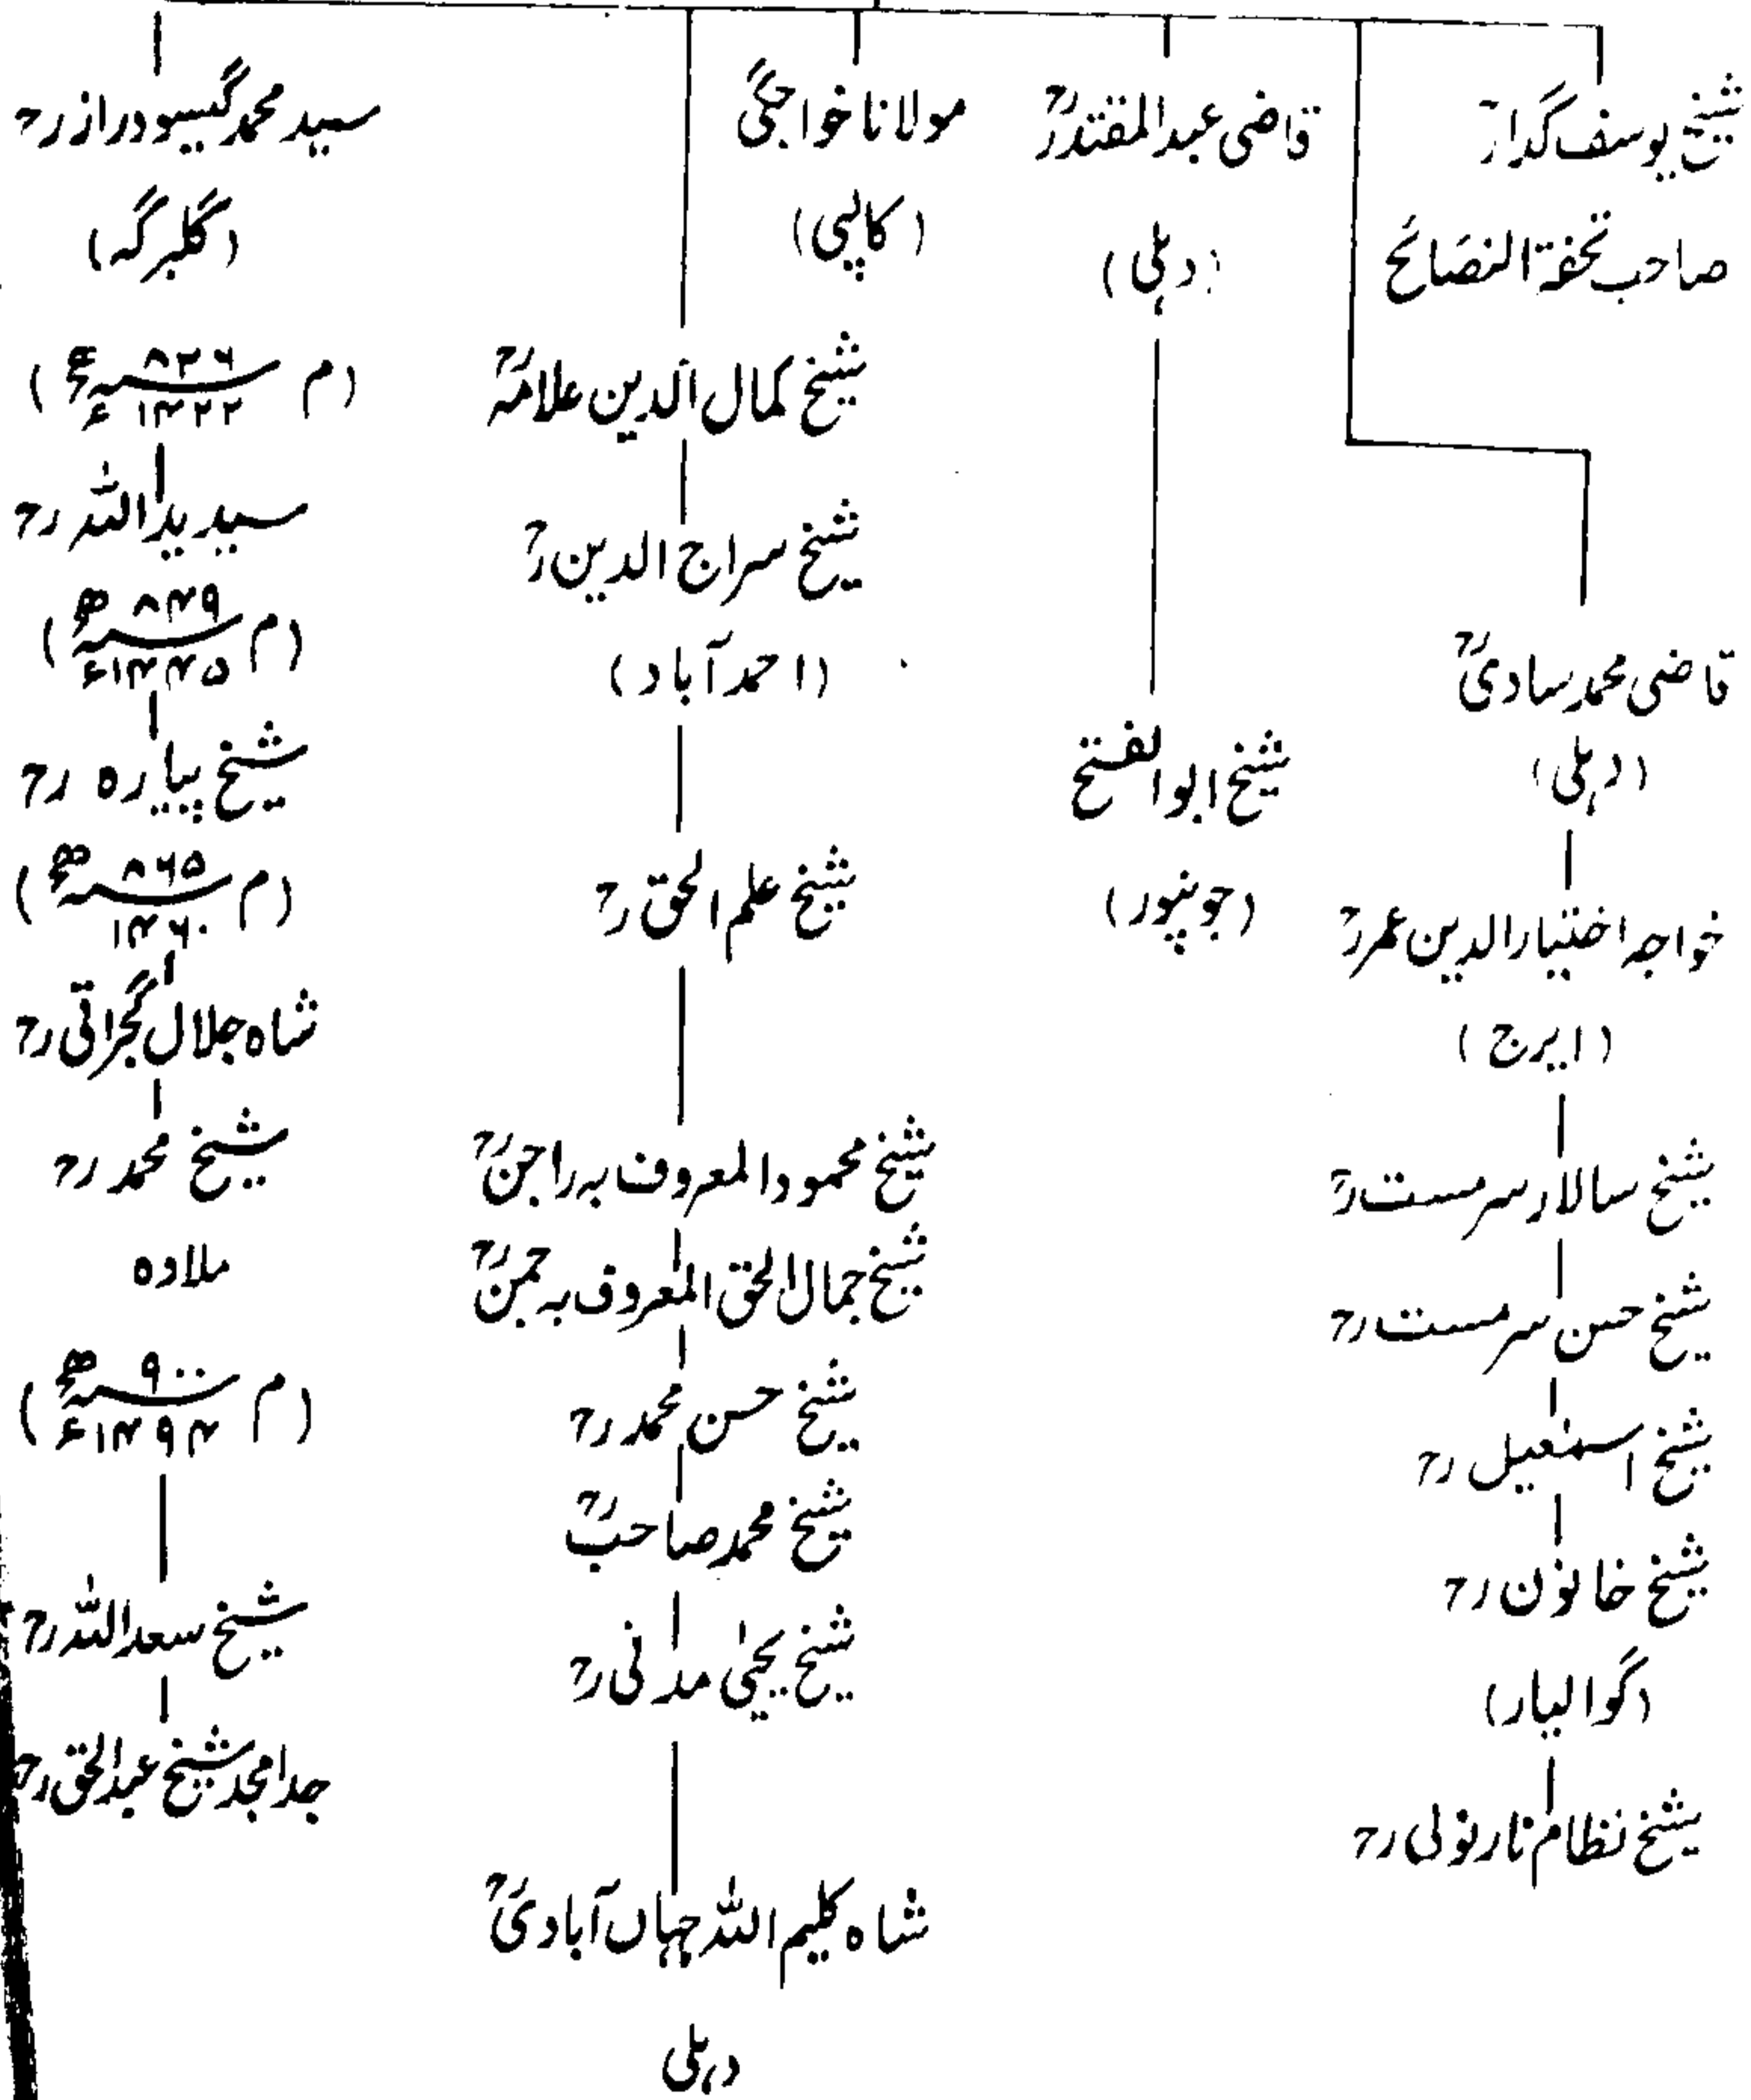 شیخ یوسف گدارح
صاحب تحفۃ النصائح
قاضی محمد ساویؒ
(دہلی)
خواجہ اختیار الدین عمررح
(ایرج)
شیخ سالار سرمست رح
شیخ حسن سرمست رح
شیخ اسمٰعیل رح
شیخ خانون رح
(گوالیار)
شیخ نظام نارنولی رح
قاضی عبدالمقتدررح
(دہلی)
شیخ ابوالفتح
(جونپور)
مولانا خواجگی
(کالپی)
شیخ کمال الدین علامہؒ
شیخ سراج الدین رح
(احمد آباد)
شیخ علم الحق رح
شیخ محمود المعروف بہ راجنؒ
شیخ جمال الحق المعروف بہ جمنؒ
شیخ حسن محمد رح
شیخ محمد صاحبؒ
شیخ یحییٰ مدنی رح
شاہ کلیم اللہ جہاں آبادیؒ
دہلی
سید محمد گیسودراز رح
(گلبرگہ)
(م ۸۲۶ھ
۱۴۲۲ء)
سید ید اللہ رح
(م ۸۴۹ھ
۱۴۴۵ء)
شیخ پیارہ رح
(م ۸۶۵ھ
۱۴۶۰)
شاہ جلال گجراتی رح
شیخ محمد رح
ملاوہ
(م ۹۰۰ھ
۱۴۹۴ء)
شیخ سعداللہ رح
جد امجد شیخ عبدالحق رح